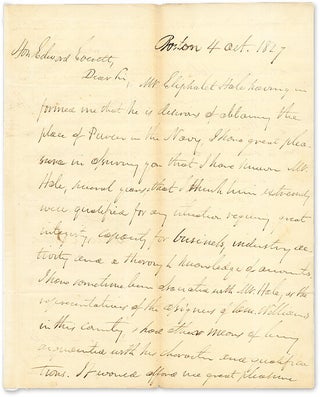 Boston 4 Oct. 1827
Hon Edward Everett,
Dear Sir, Mr Eliphalet Hale having in
formed me that he is desirous of obtaining the
place of Purser in the Navy, I have great plea
sure in assuring you that I have known Mr.
Hale, several years & that I think him extremely
well qualified for any situation requiring great
integrity, capacity for business, industry, ac
tivity and a thorough knowledge of accounts.
I have sometimes been connected with Mr. Hale, as the
representatives of the assignees of Williams
in this County, & had other means of being
acquainted with his character and qualifica
tions. It would afford me great pleasure